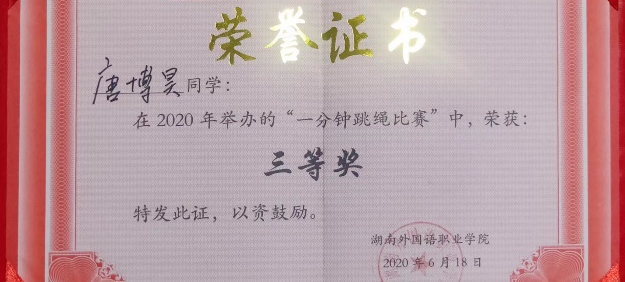 荣誉证书
唐博昊同学：
在 2020 年举办的“一分钟跳绳比赛”中，荣获：
三等奖
特发此证，以资鼓励。
湖南外国语职业学院
2020 年 6 月 18 日